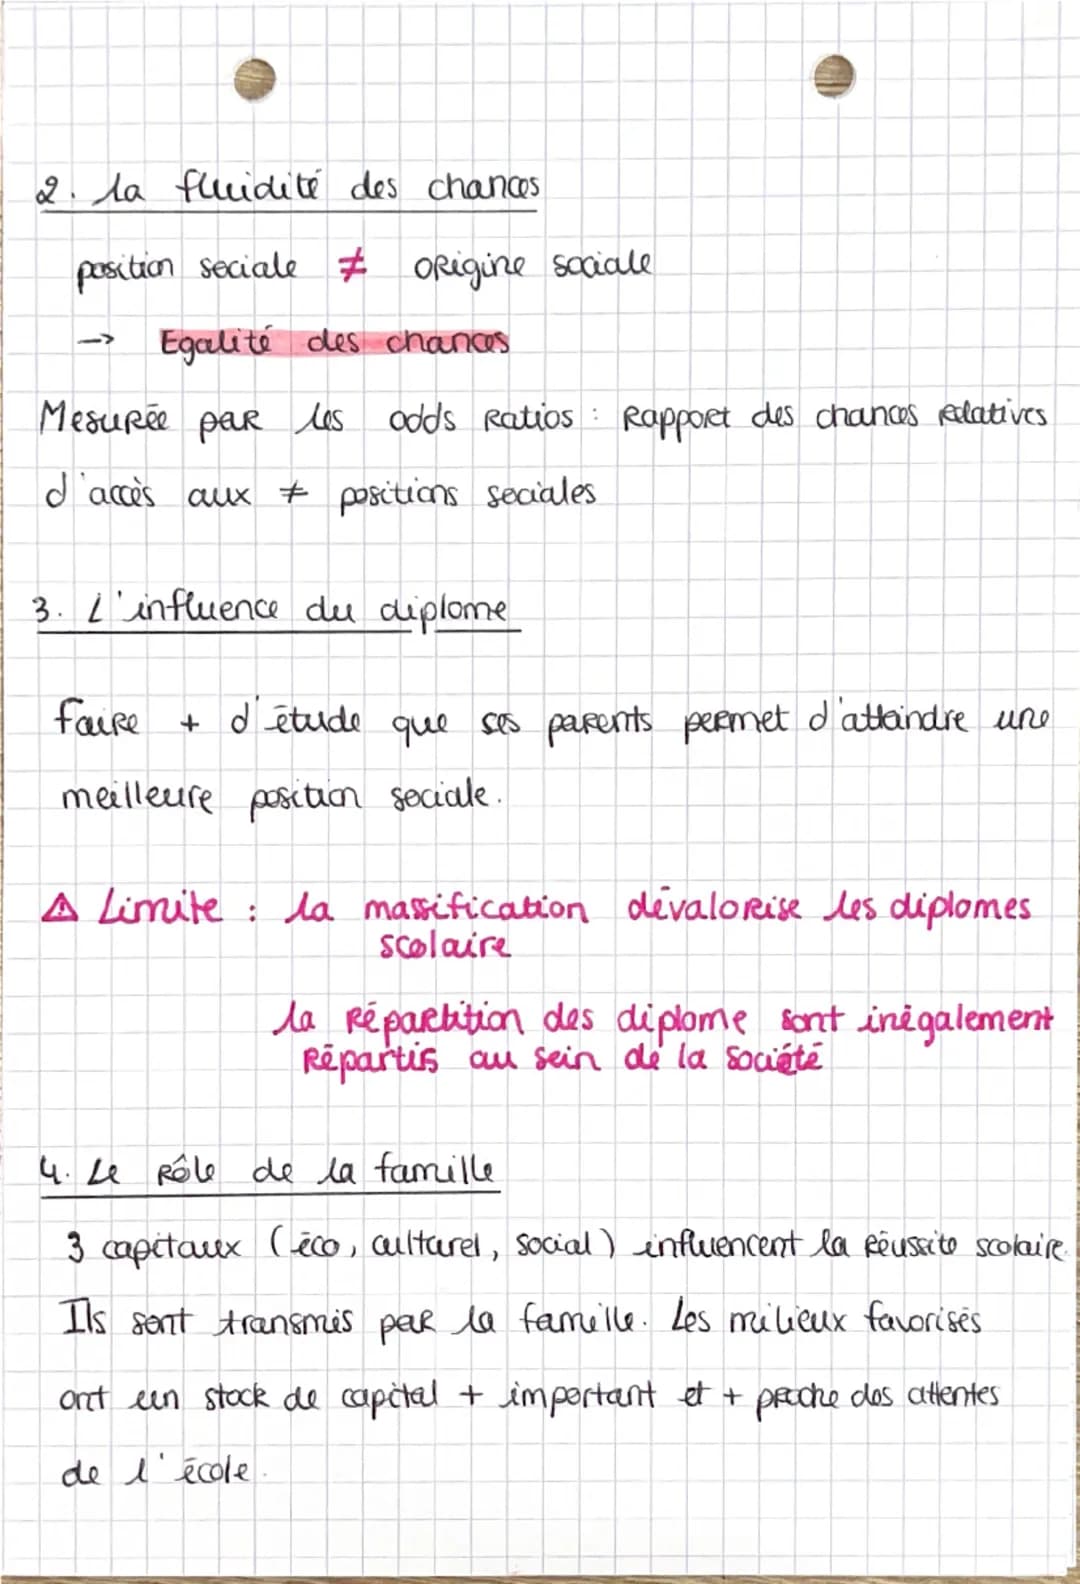 2. La fluidité des chances
position sociale ≠ origine sociale
-> Egalité des chances
Mesurée par les odds Ratios : Rapport des chances relatives
d'accès aux ≠ positions sociales
3. L'influence du diplome
faire + d'étude que ses parents permet d'atteindre une
meilleure position sociale.
⚠ Limite : la massification dévalorise les diplomes
scolaire
la répartition des diplome sont inégalement
Répartis au sein de la société
4. Le rôle de la famille
3 capitaux (éco, culturel, social) influencent la réussite scolaire.
Ils sont transmis par la famille. Les milieux favorisés
ont un stock de capital + important et + proche des attentes
de l'école.